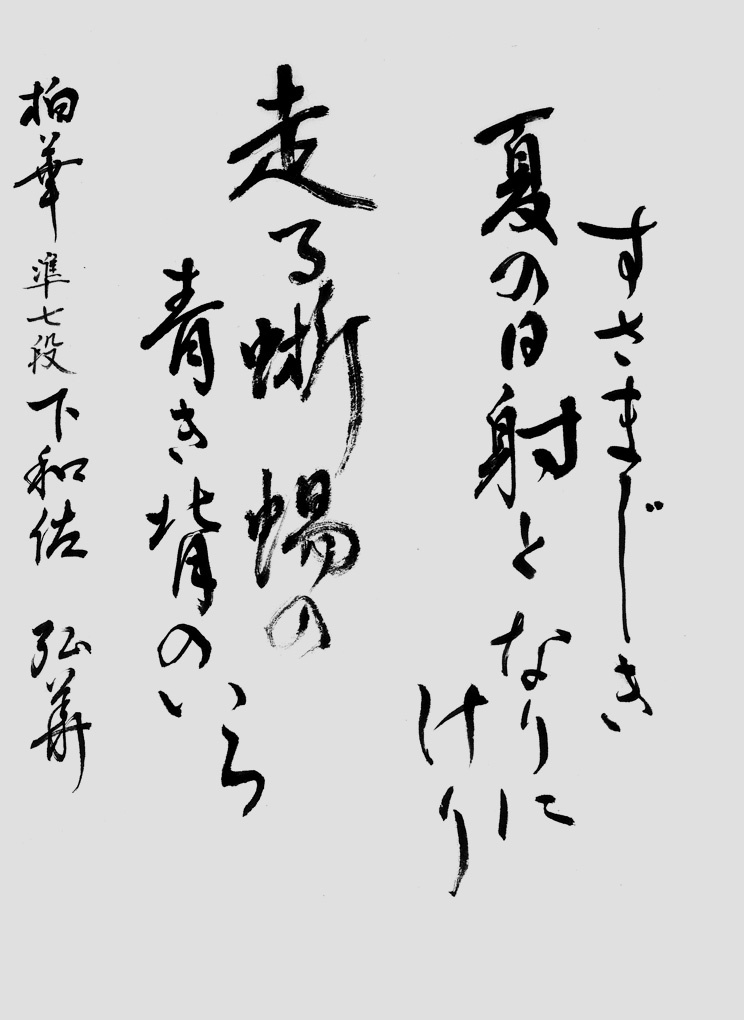 すさまじき
夏の日射となりに
けり
走る蜥蜴の
青き背のいろ
柏華 準七段 下和佐 弘華